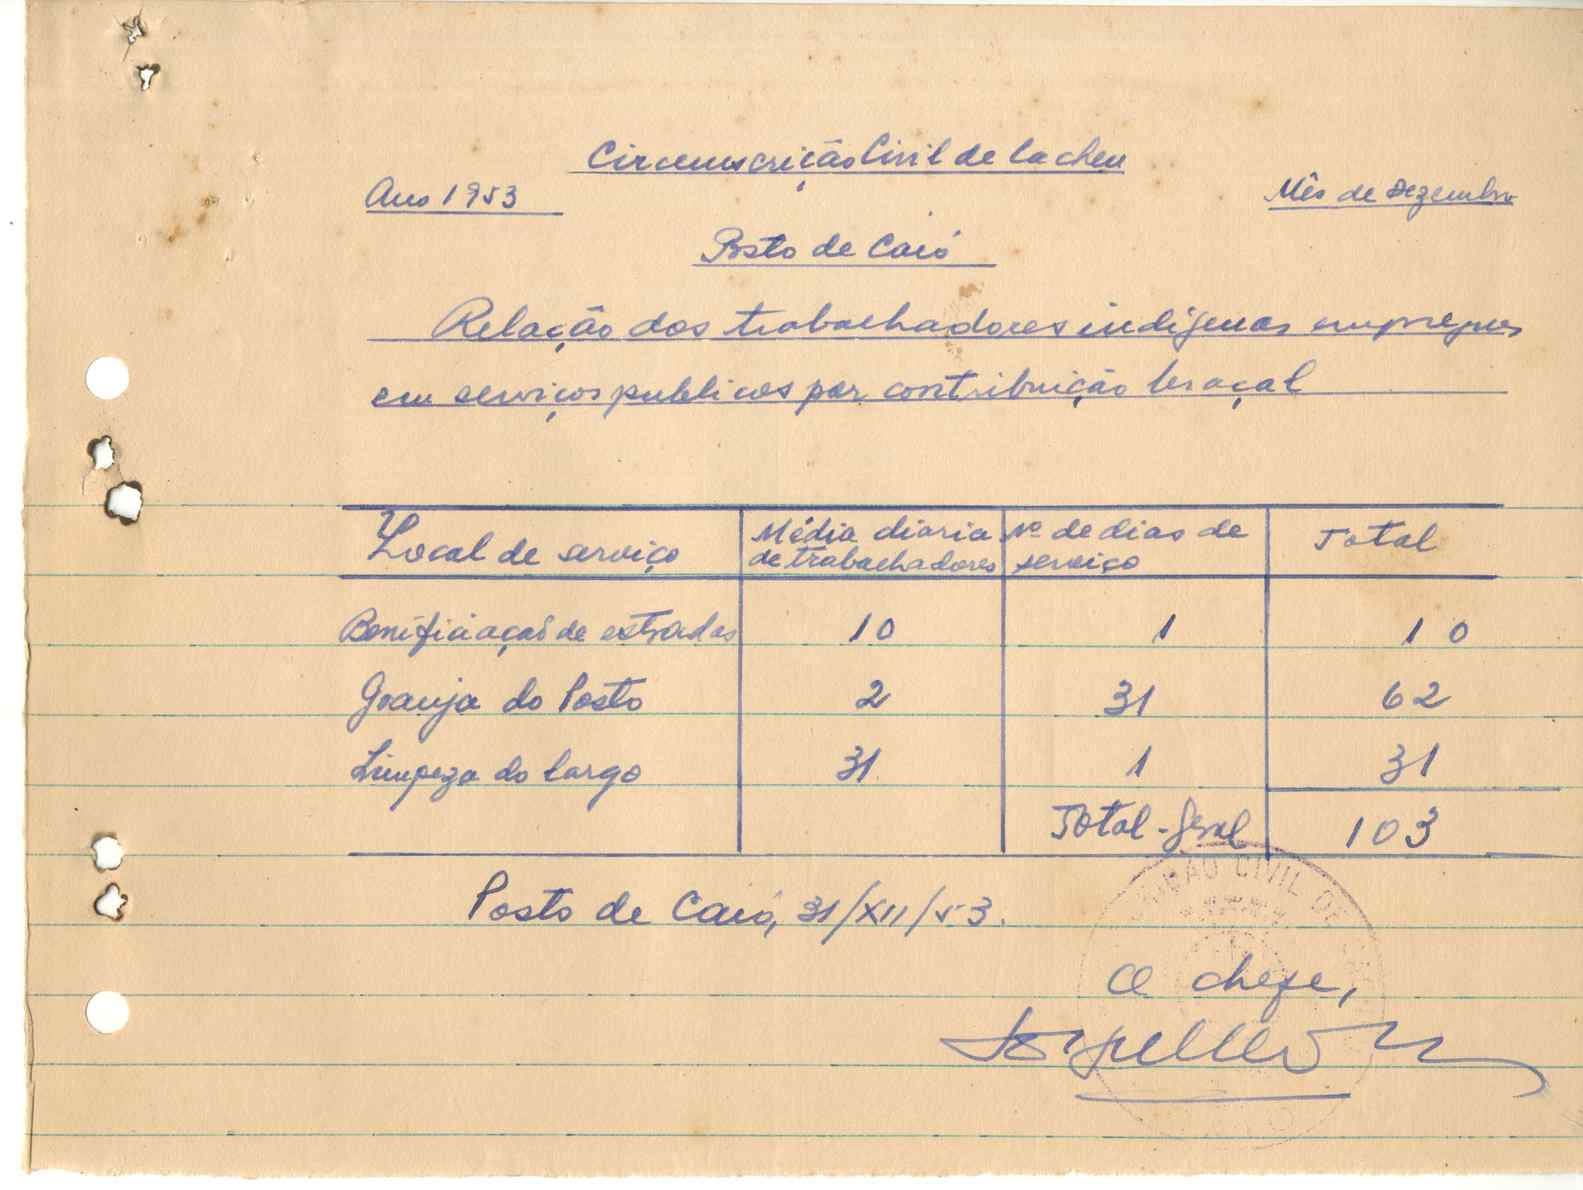 Circumscrição Civil de Cacheu
Ano 1953
Mês de Dezembro
Posto de Caió
Relação dos trabalhadores indígenas
em serviços publicos por contribuição braçal
Local de serviço
Média diaria de trabalhadores
Nº de dias de serviço
Total
Bonificiação de estradas 10 1 10
Granja do Posto 2 31 62
Limpeza do largo 31 1 31
Total-geral 103
Posto de Caió, 31/XII/53.
O chefe,
CIVIL DE